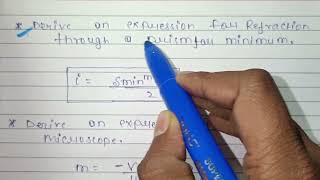 * Derive an expression for Refraction
through a prism for minimum.
i = δmin
2
* Derive an
microscope.
m = -V